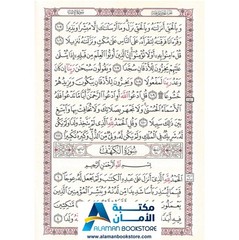 وَبِالْحَقِّ أَنزَلْنَاهُ وَبِالْحَقِّ نَزَلَ وَمَا أَرْسَلْنَاكَ إِلَّا مُبَشِّرًا وَنَذِيرًا ١٠٥
وَقُرْآنًا فَرَقْنَاهُ لِتَقْرَأَهُ عَلَى النَّاسِ عَلَى مُكْثٍ وَنَزَّلْنَاهُ تَنزِيلًا ١٠٦
قُلْ آمِنُوا بِهِ أَوْ لَا تُؤْمِنُوا إِنَّ الَّذِينَ أُوتُوا الْعِلْمَ مِن قَبْلِهِ إِذَا يُتْلَى
عَلَيْهِمْ يَخِرُّونَ لِلْأَذْقَانِ سُجَّدًا ١٠٧ وَيَقُولُونَ سُبْحَانَ رَبِّنَا إِن كَانَ
وَعْدُ رَبِّنَا لَمَفْعُولًا ١٠٨ وَيَخِرُّونَ لِلْأَذْقَانِ يَبْكُونَ وَيَزِيدُهُمْ
خُشُوعًا ١٠٩ قُلِ ادْعُوا اللَّهَ أَوِ ادْعُوا الرَّحْمَنَ أَيًّا مَّا تَدْعُوا فَلَهُ
الْأَسْمَاءُ الْحُسْنَى وَلَا تَجْهَرْ بِصَلَاتِكَ وَلَا تُخَافِتْ بِهَا وَابْتَغِ
بَيْنَ ذَلِكَ سَبِيلًا ١١٠ وَقُلِ الْحَمْدُ لِلَّهِ الَّذِي لَمْ يَتَّخِذْ وَلَدًا وَلَمْ يَكُن لَّهُ
شَرِيكٌ فِي الْمُلْكِ وَلَمْ يَكُن لَّهُ وَلِيٌّ مِّنَ الذُّلِّ وَكَبِّرْهُ تَكْبِيرًا ١١١
سُورَةُ الْكَهْفِ
بِسْمِ اللَّهِ الرَّحْمَنِ الرَّحِيمِ
الْحَمْدُ لِلَّهِ الَّذِي أَنزَلَ عَلَى عَبْدِهِ الْكِتَابَ وَلَمْ يَجْعَل لَّهُ عِوَجًا
قَيِّمًا لِّيُنذِرَ بَأْسًا شَدِيدًا مِّن لَّدُنْهُ وَيُبَشِّرَ الْمُؤْمِنِينَ
مكتبة
الأمان
ALAMAN BOOKSTORE
www.alamanbookstore.com